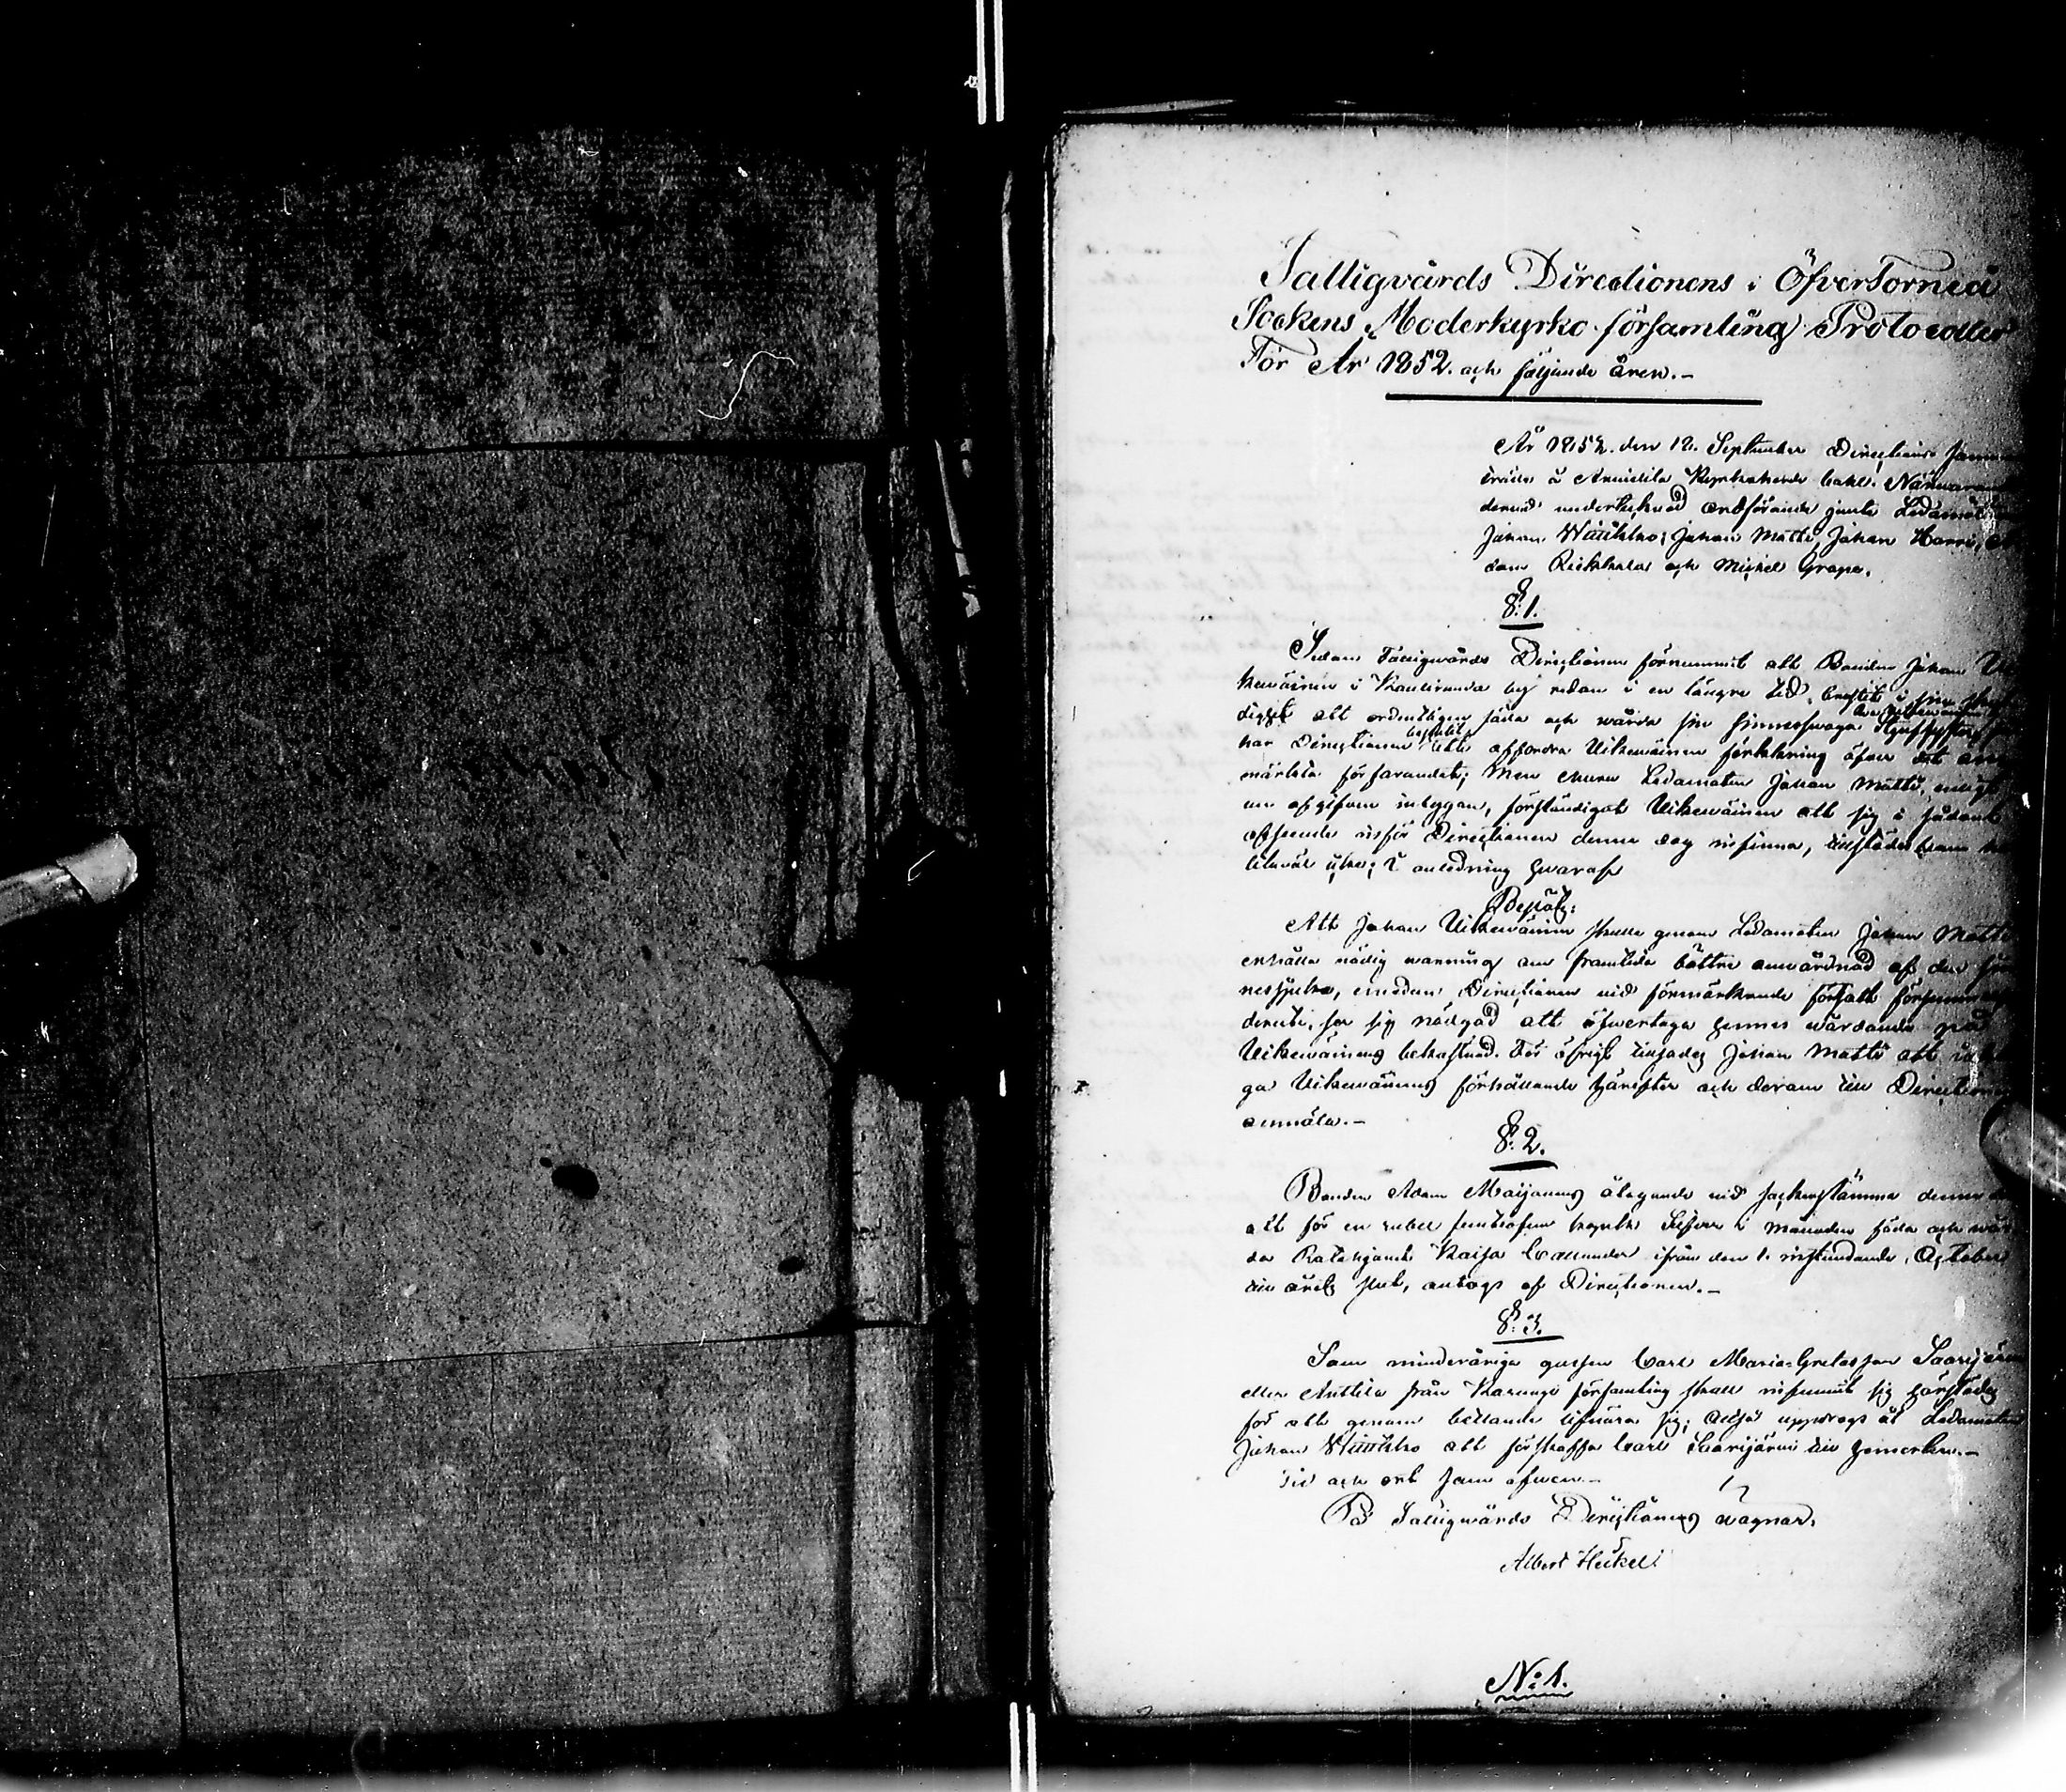 Fattigvårds Directionens i Öfvertorneå
Sockens Moderkyrko-församling Protocoller
För År 1852. och följande åren.-
År 1852. den 12. September Directions samman
träde å Annitila Kyrkoherde bohl. Närvarande
dervid undertecknad ordförande jemte Ledamöter
Johan Wuokko, Johan Matti, Johan Harri,
dam Riekkola och Michel Grape.
§. 1.
Sedan Fattigvårds Directionen förnummit att Bonden Johan
kewäinen i Kantiranda by redan i en längre tid brustit i sin
dighet att ordentligen föda och vårda sin sinnessvaga Styfsyster
har Directionen beslutit affordra Uikewäinen förklaring öfver det
märkta förfarandet; Men churu Ledamoten Johan Matti, enligt
om afgifven intygan, förständigat Uikewäinen att sig i sådant
afseende inför Directionen denna dag infinna, tillstädeskom
likväl icke; I anledning hvaraf
Beslöts:
Att Johan Uikewäinen skulle genom Ledamoten Johan Matti
erhålla nödig varning om framtida bättre omvårdnad af den sin
nessjuka, emedan Directionen vid förmärkande fortsatt försummelse
deruti, ser sig nödgad att öfvertaga hennes vårdande på
Uikewäinens bekostnad. För öfrigt tillsades Johan Matti att iaktta
ga Uikewäinens förhållande härefter och derom till Directionen
anmäla.-
§. 2.
Bonden Adam Maijanens åtagande vid sockenstämma denna dag
att för en rubel femtiofem kopek Silfver i månaden föda och vår
da Rotehjonet Kaisa Callunder ifrån den 1. instundande October
till årets slut, antogs af Directionen.-
§. 3.
Som minderårige gossen Carl Maria-Gretasson Saarijärvi
eller Anttila från Karungi församling skall infunnit sig härstädes
för att genom bettlande lifnära sig; Altså uppdrogs åt Ledamoten
Johan Wuokko att förskaffa Carl Saarijärvi till hemorten.-
Tid och ort som ofvan.-
På Fattigvårds Directionens vägnar.
Albert Heikel
N:o 1.